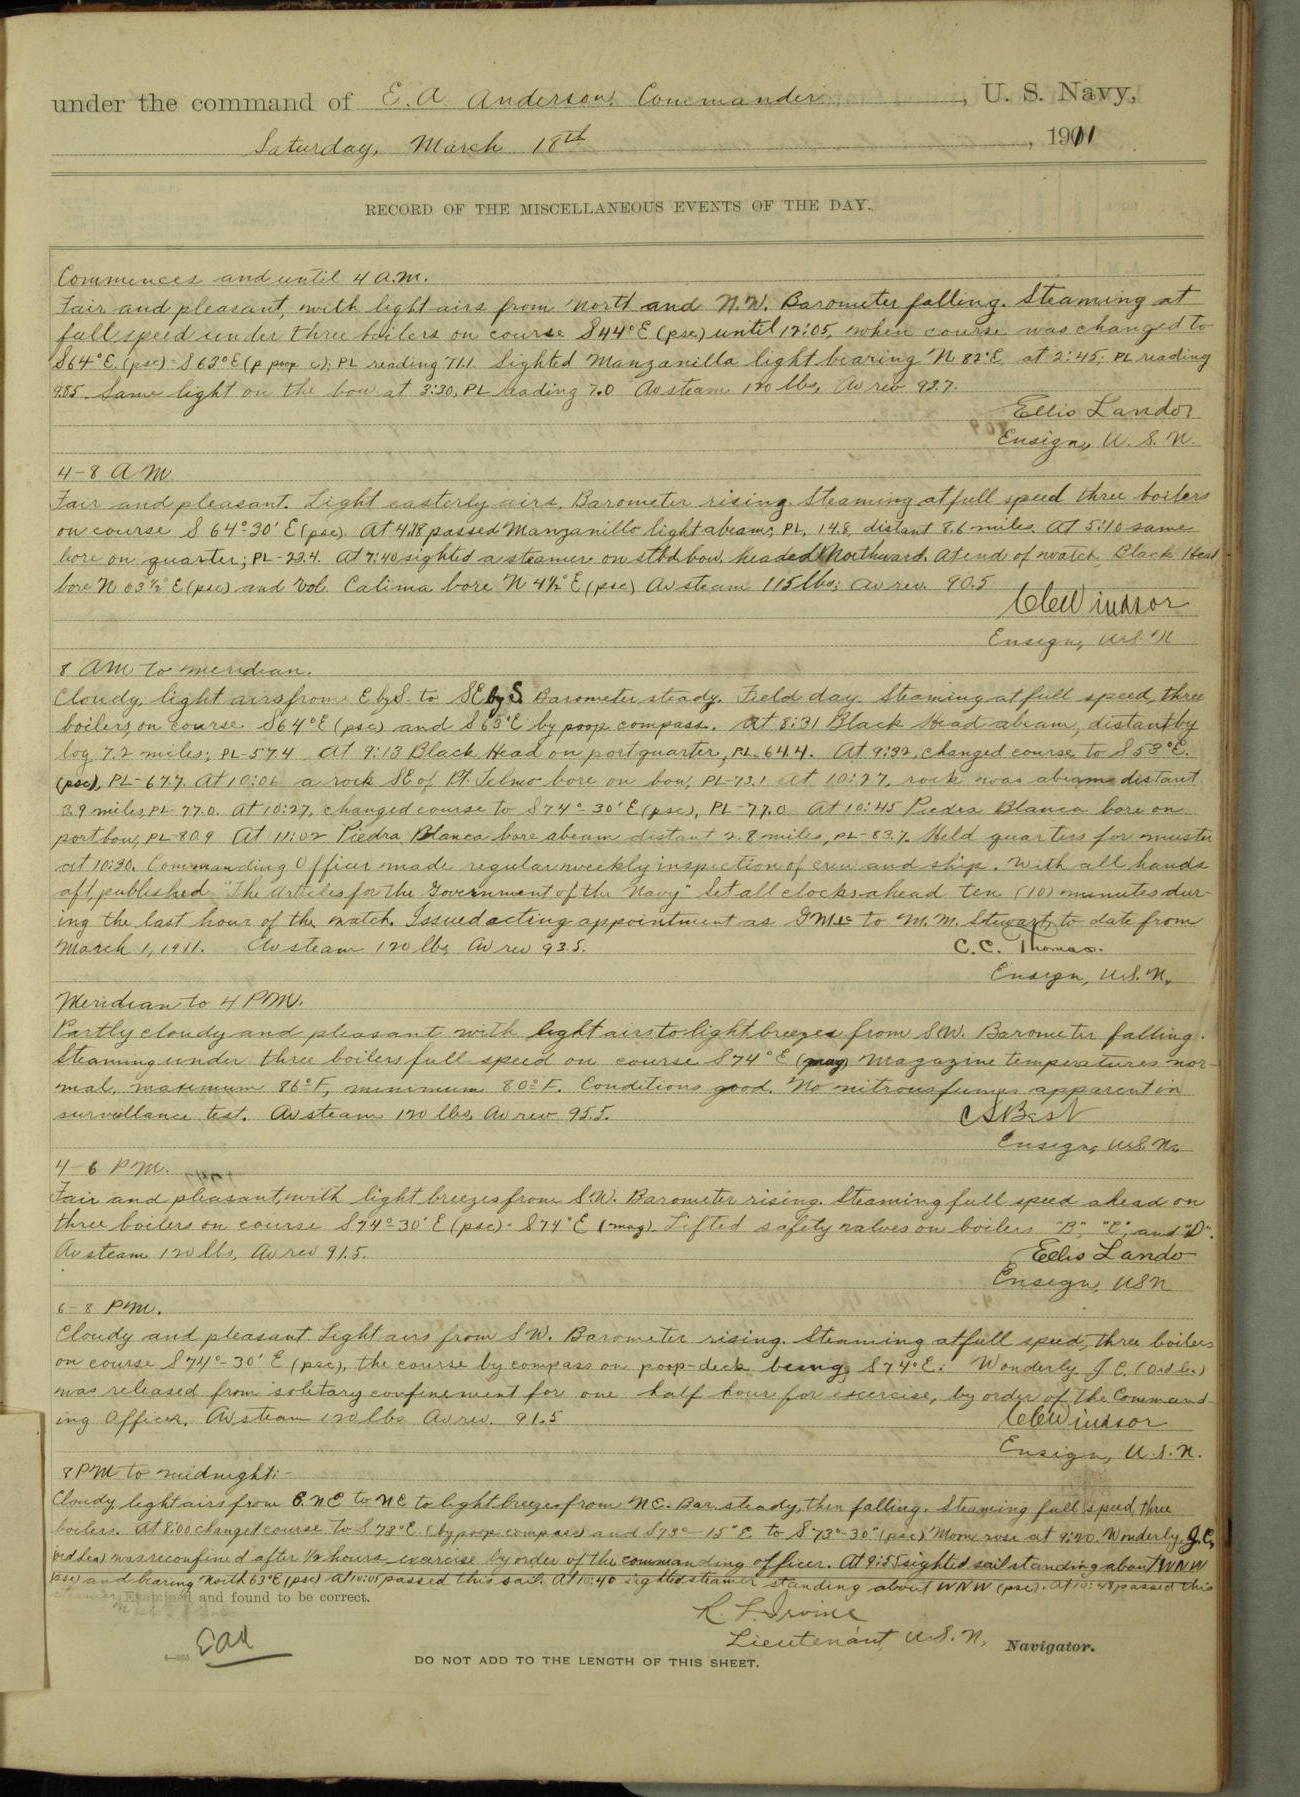 under the command of E. A. Anderson, Commander, U. S. Navy,
Saturday, March 18th, 1911
RECORD OF THE MISCELLANEOUS EVENTS OF THE DAY.
Commences and until 4 A.M.
Fair and pleasant, with light airs from North and N.W. Barometer falling. Steaming at
full speed under three boilers on course S44°E (psc) until 12:05, when course was changed to
S64°E. (psc) - S63°E (p poop c); PL reading 71.1 Sighted Manzanilla light bearing N 82°E at 2:45; PL reading
98.5. Same light on the bow at 3:30, PL reading 7.0 Av steam 120 lbs, Av rev 92.7.
Ellis Lando
Ensign, U. S. N.
4-8 A M.
Fair and pleasant. Light easterly airs. Barometer rising. Steaming at full speed three boilers
on course S 64°-30' E (psc) At 4:18 passed Manzanillo light abeam; PL, 14.8, distant 8.6 miles. At 5:10 same
bore on quarter; PL-23.4. At 7:40 sighted a steamer on stbd bow, headed Northward. At end of watch, Black Head
bore N 63½°E (psc) and Vol. Calima bore N 4½°E (psc) Av steam 115 lbs; av rev. 90.5
Windsor
Ensign, U.S.N
8 AM to meridian.
Cloudy, light airs from E by S. to SE by S. Barometer steady. Field day. Steaming at full speed, three
boilers, on course S64°E (psc) and S63°E by poop compass. At 8:31 Black Head abeam, distant by
log 7.2 miles; PL-57.4 At 9:13 Black Head on port quarter, PL. 64.4. At 9:32, changed course to S53°E.
(psc), PL-67.7. At 10:06 a rock SE of Pt. Telmo bore on bow, PL-73.1 At 10:27, rock was abeam distant
3.9 miles, PL-77.0. At 10:27, changed course to S74°-30'E (psc), PL-77.0 At 10:45 Piedra Blanca bore on
port bow, PL-80.9 At 11:02 Piedra Blanca bore abeam distant 2.8 miles, PL-83.7. Held quarters for muster
at 10:30. Commanding Officer made regular weekly inspection of crew and ship. With all hands
aft, published "The Articles for the Government of the Navy" Set all clocks ahead ten (10) minutes dur-
ing the last hour of the watch. Issued acting appointment as GM1c to M. M. Stewart, to date from
March 1, 1911. Av steam 120 lbs, Av rev 93.5.
C. C. Thomas.
Ensign, U.S.N.
Meridian to 4 P.M.
Partly cloudy and pleasant with light airs to light breezes from S.W. Barometer falling.
Steaming under three boilers full speed on course S74°E (mag) Magazine temperatures nor-
mal, maximum 86°F, minimum 80°F. Conditions good. No nitrous fumes apparent in
surveillance test. Av steam 120 lbs, Av rev 95.5.
C S Best
Ensign, U.S.N.
4-6 P.M.
Fair and pleasant, with light breezes from S.W. Barometer rising. Steaming full speed ahead on
three boilers on course S74°30'E (psc) - S74°E (mag). Lifted safety valves on boilers "B", "C", and "D".
Av steam 120 lbs, Av rev 91.5.
Ellis Lando
Ensign, USN
6-8 P.M.
Cloudy and pleasant. Light airs from S.W. Barometer rising. Steaming at full speed, three boilers
on course S74°-30' E (psc), the course by compass on poop-deck being S74°E. Wonderly, J. C. (Ord Sea)
was released from solitary confinement for one half hour for exercise, by order of the Command-
ing Officer. Av steam 120 lbs Av rev. 91.5
Windsor
Ensign, U.S.N.
8 P.M to midnight:-
Cloudy light airs from E.NE to NE to light breezes from NE. Bar. steady, then falling. Steaming full speed, three
boilers. At 8:00 changed course to S73°E (by poop compass) and S73°-15'E to S73°-30' (psc) Moon rose at 9:20. Wonderly, J. C,
(ord sea) was reconfined after 1/2 hours exercise by order of the commanding officer. At 9:55 sighted sail standing about WNW
(psc) and bearing North 63°E (psc) At 10:05 passed this sail. At 10:40 sighted steamer standing about WNW (psc). At 10:48 passed this
steamer Examined and found to be correct.
R. F. Irvine
Lieutenant U.S.N. Navigator.
EAA
DO NOT ADD TO THE LENGTH OF THIS SHEET.